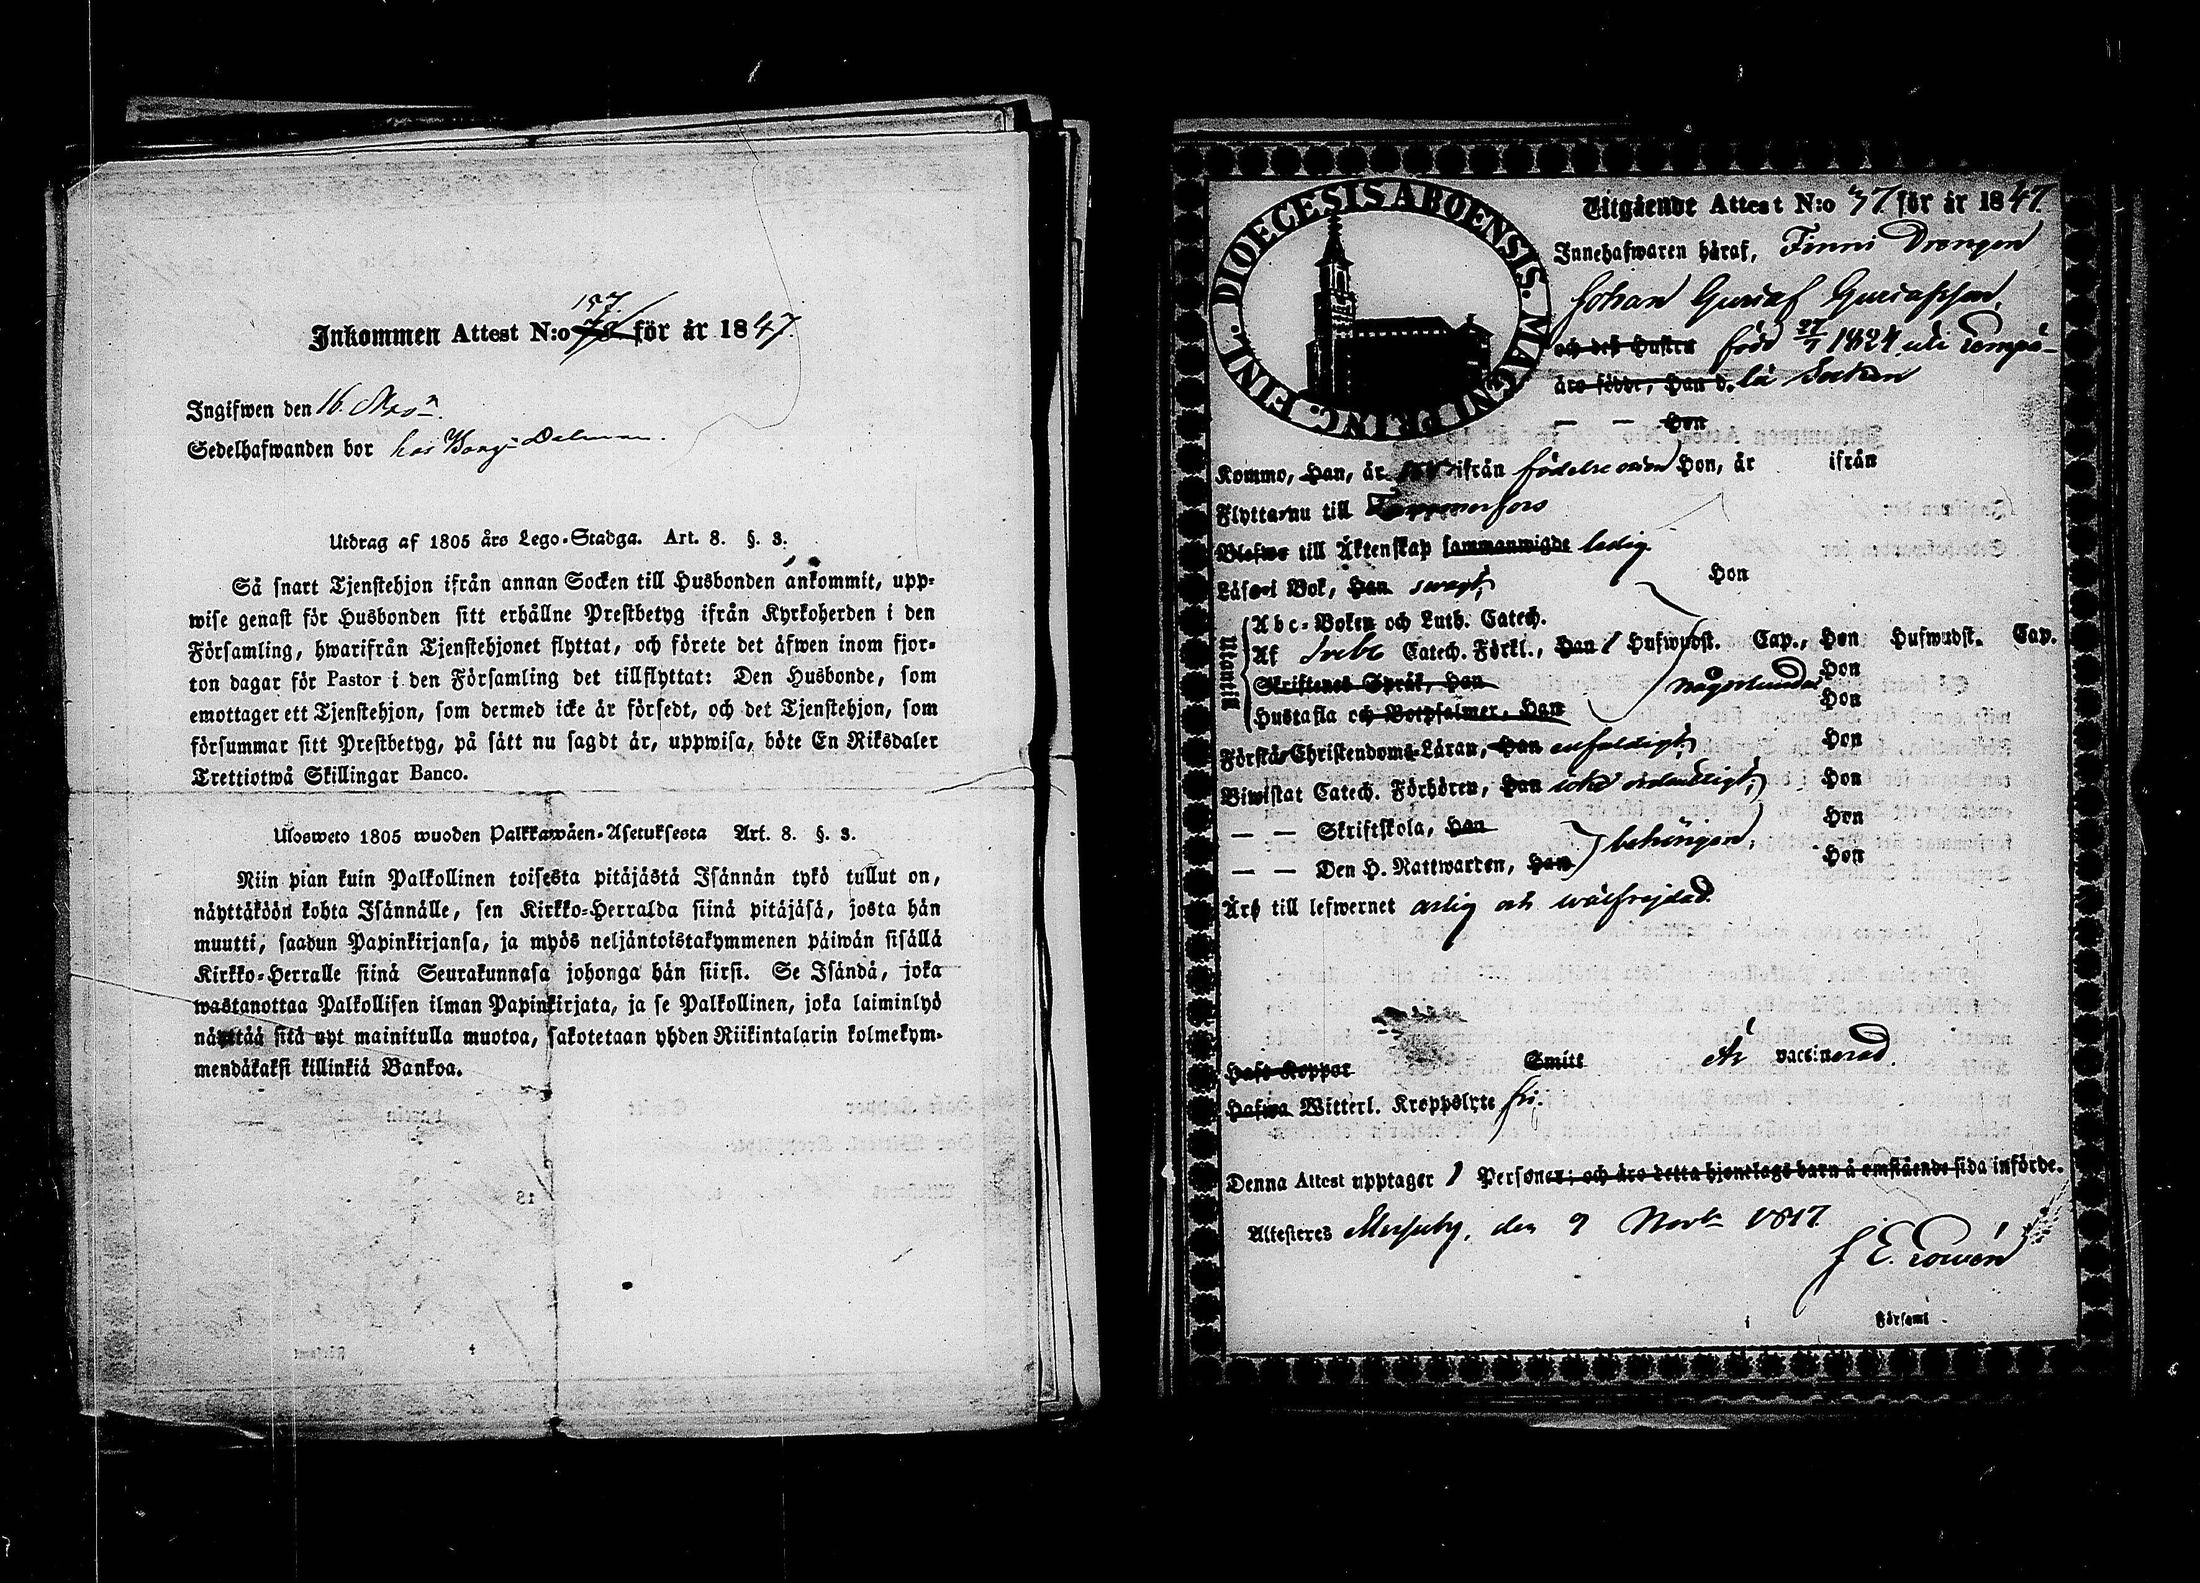 157.
Inkommen Attest N:o för år 1847.
Ingifwen den 16.
Sedelhafwanden bor hos Dalman.
Utdrag af 1805 års Lego-Stadga. Art. 8. §. 3.
Så snart Tjenstehjon ifrån annan Socken till Husbonden ankommit, upp-
wise genast för Husbonden sitt erhållne Prestbetyg ifrån Kyrkoherden i den
Församling, hwarifrån Tjenstehjonet flyttat, och förete det äfwen inom fjor-
ton dagar för Pastor i den Församling det tillflyttat: Den Husbonde, som
emottager ett Tjenstehjon, som dermed icke är försedt, och det Tjenstehjon, som
försummar sitt Prestbetyg, på sätt nu sagdt är, uppwisa, böte En Riksdaler
Trettiotwå Skillingar Banco.
Ulosweto 1805 wuoden Palkkawäen-Asetuksesta Art. 8. §. 3.
Niin pian kuin Palkollinen toisesta pitäjästä Isännän tykö tullut on,
näyttäköön kohta Isännälle, sen Kirkko-Herralda siinä pitäjäsä, josta hän
muutti, saadun Papinkirjansa, ja myös neljäntoistakymmenen päiwän sisällä
Kirkko-Herralle siinä Seurakunnasa johonga hän siirsi. Se Isändä, joka
wastanottaa Palkollisen ilman Papinkirjata, ja se Palkollinen, joka laiminlyö
näyttää sitä nyt mainitulla muotoa, sakotetaan yhden Riikintalarin kolmekym-
mendäkaksi killinkiä Bankoa.
DIOECESIS ABOENSIS. MAGNI PRINC. FINL.
Utgående Attest N:o 37 för år 1847.
Innehafwaren häraf, Finni Drengen
Johan Gustaf Gustafsson,
och deß Hustru född 27/7 1824 uti Lempä-
äro födde, Han d. lä Socken
— — Hon
Kommo, Han, år ifrån födelseorten Hon, år ifrån
Flytta nu till Tammerfors
Blefwo till Äktenskap sammanwigde ledig.
Hon
Läser i Bok, Han swagt,
Utantill
Abc-Boken och Luth. Catech.
Af Svebe Catech. Förkl., Han 1 Hufwudst. Cap., Hon Hufwudst. Cap.
Skriftenes Språk, Han någorlunda Hon
Hustafla och Botpsalmer, Han Hon
Förstår Christendoms Läran, Han enfaldigt, Hon
Biwistat Catech. Förhören, Han icke ordentligt, Hon
— — Skriftskola, Han Hon
— — Den H. Nattwarden, Han behörigen, Hon
Är till lefwernet ärlig och wälfrejdad.
Haft Koppor Smitt är vaccinerad.
Hafwa Witterl. Kroppslyte fri.
Denna Attest upptager 1 Personer; och äro detta hjonelags barn å omstående sida införde.
Attesteres Messuby, den 9 Novbr 1847.
i Församl.